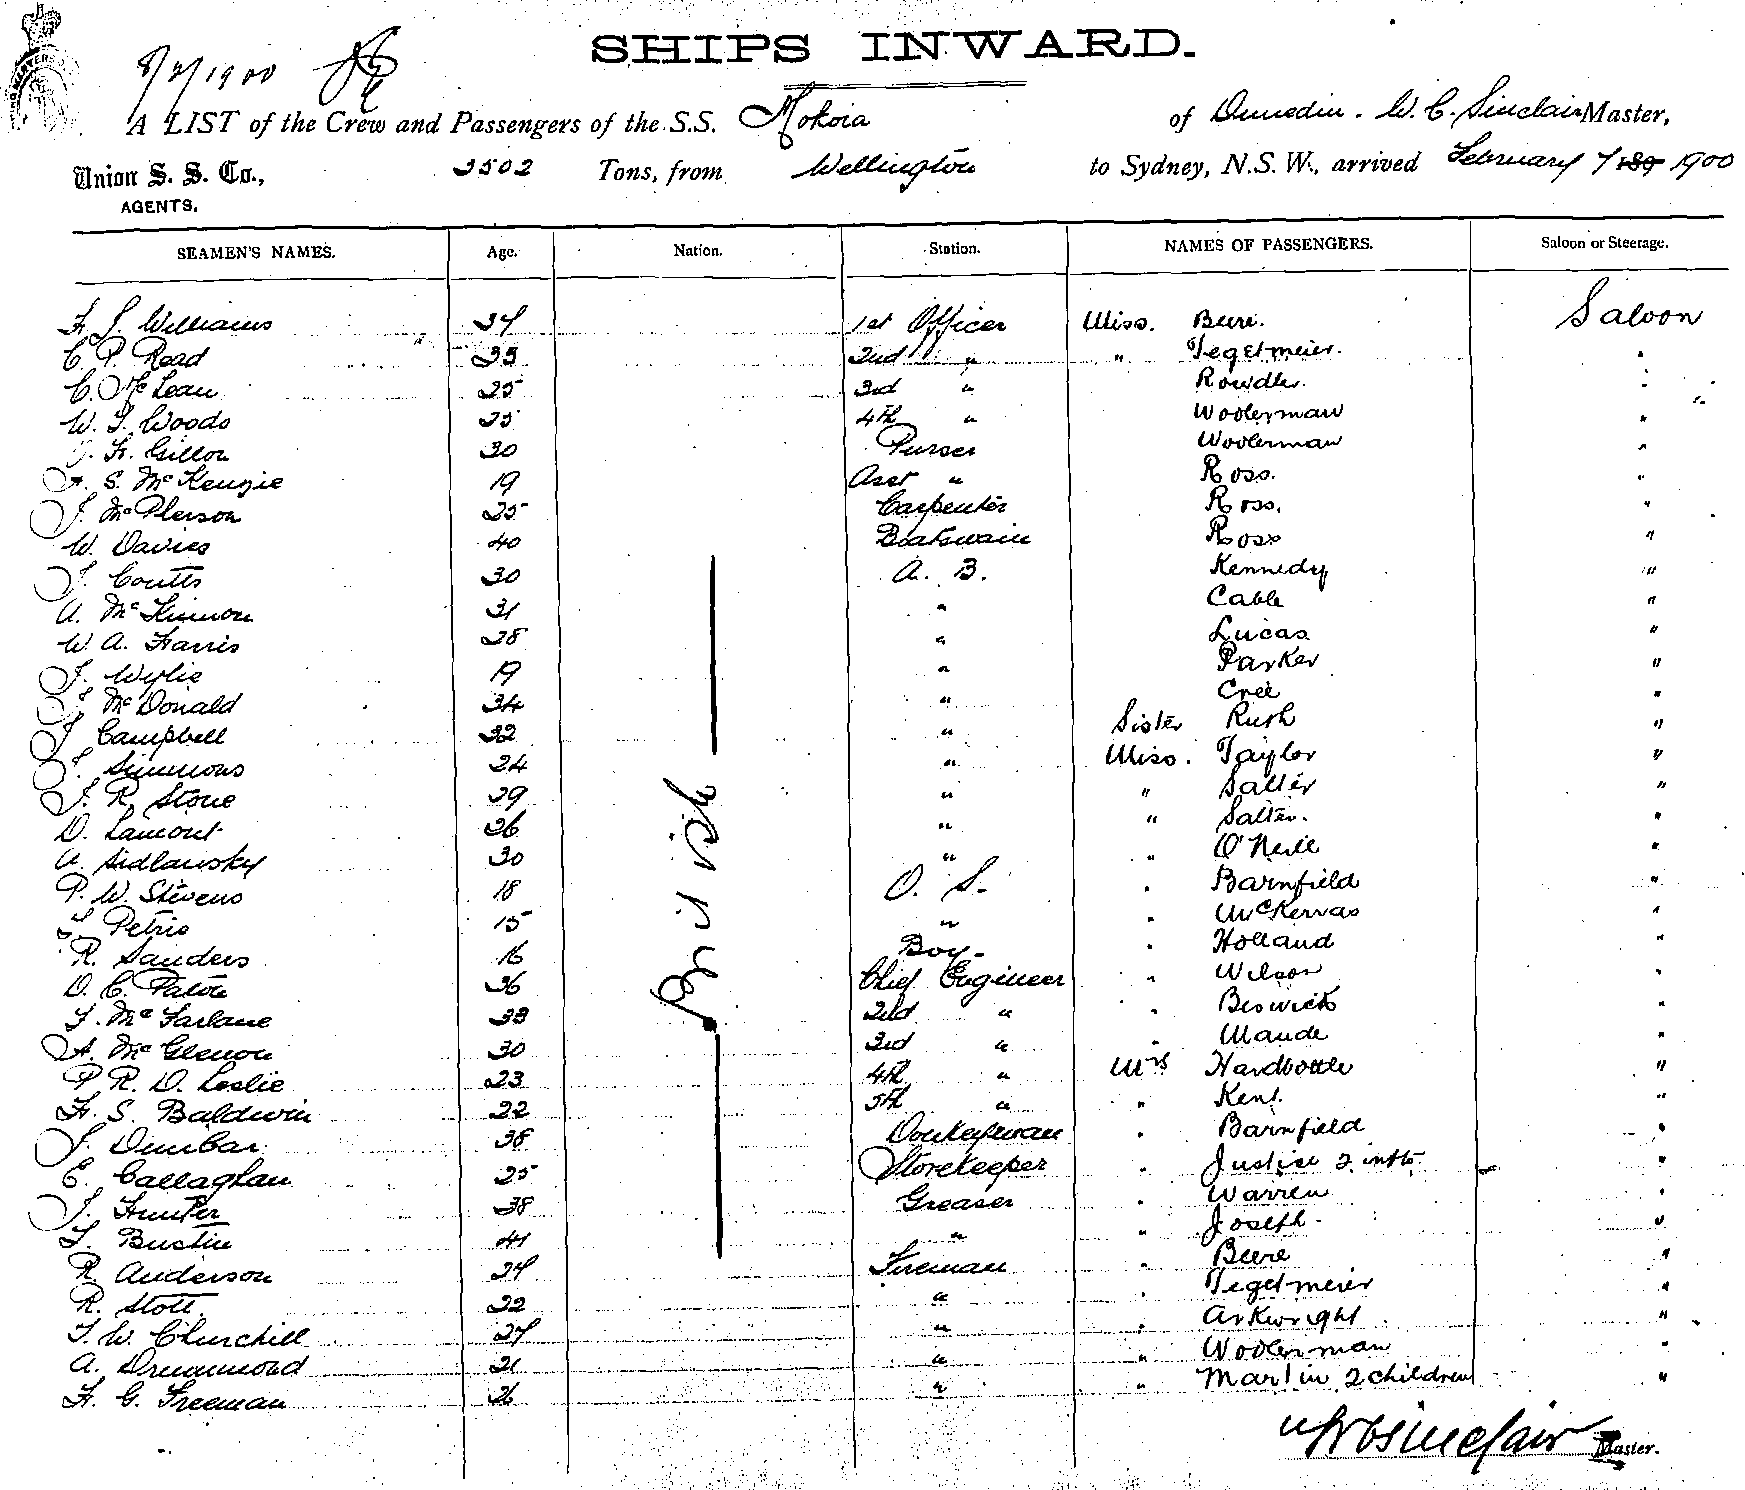 SHIPS INWARD.
8/2/1900
A LIST of the Crew and Passengers of the S.S. Mokoia of Dunedin. W. C. Sinclair Master,
Union S. S. Co., 3502 Tons, from Wellington to Sydney, N.S.W., arrived February 7 189 1900
AGENTS.
SEAMEN'S NAMES. Age. Nation. Station. NAMES OF PASSENGERS. Saloon or Steerage.
Williams 34 1st Officer Miss. Beere. Saloon
C. P. Read 35 2nd " " Tegetmeier. "
C. McLean 25 3rd " Rowdler. "
W. Woods 25 4th " Woolerman "
Gillon 30 Purser Woolerman "
S. McKenzie 19 Asst " Ross. "
J. McPherson 25 Carpenter Ross. "
W. Davies 40 Boatswain Ross "
J. Coutts 30 A. B. Kennedy "
A. McKinnon 31 " Cable "
W. A. Harris 28 " Lucas "
J. Wylie 19 " Parker "
J. McDonald 34 " Cree "
J. Campbell 32 " Sister Rush "
J. Simmons 24 " Miss. Taylor "
J. R. Stone 29 " " Salter "
D. Lamont 36 " " Salter. "
A. Sidlawsky 30 " " O'Neill "
P. W. Stevens 18 O. S. " Barnfield "
Petrie 15 " " McKervas "
R. Sanders 16 Boy " Holland "
D. C. Paton 36 Chief Engineer " Wilson "
McFarlane 33 2nd " " Beswick "
A. McGlenon 30 3rd " " Maude "
P. R. D. Leslie 23 4th " Mrs Hardbottle "
H. S. Baldwin 22 5th " " Kent. "
J. Dunbar 38 Donkeyman " Barnfield "
E. Callaghan 25 Storekeeper " Justice 2 infts "
J. Hunter 38 Greaser " Warren "
Bustin 41 " " Joseph. "
R. Anderson 24 Fireman " Beere "
R. Stott. 22 " " Tegetmeier "
W. Churchill 24 " " Arkwright "
A. Drummond 21 " " Woolerman "
H. G. Freeman 26 " " Martin 2 children "
British
W C Sinclair Master.